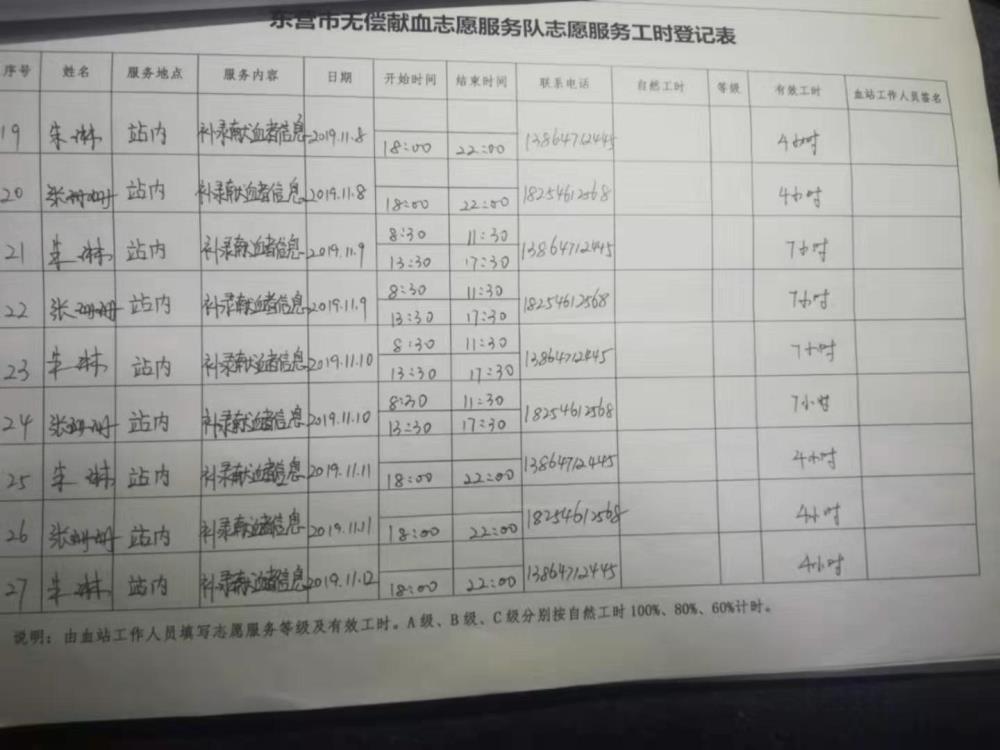 东营市无偿献血志愿服务队志愿服务工时登记表
序号 姓名 服务地点 服务内容 日期 开始时间 结束时间 联系电话 自然工时 等级 有效工时 血站工作人员签名
19 朱琳 站内 补录献血者信息 2019.11.8 18:00 22:00 13864712445 4小时
20 张珊珊 站内 补录献血者信息 2019.11.8 18:00 22:00 18254612568 4小时
21 朱琳 站内 补录献血者信息 2019.11.9 8:30 11:30 13864712445 7小时
13:30 17:30
22 张珊珊 站内 补录献血者信息 2019.11.9 8:30 11:30 18254612568 7小时
13:30 17:30
23 朱琳 站内 补录献血者信息 2019.11.10 8:30 11:30 13864712445 7小时
13:30 17:30
24 张珊珊 站内 补录献血者信息 2019.11.10 8:30 11:30 18254612568 7小时
13:30 17:30
25 朱琳 站内 补录献血者信息 2019.11.11 18:00 22:00 13864712445 4小时
26 张珊珊 站内 补录献血者信息 2019.11.11 18:00 22:00 18254612568 4小时
27 朱琳 站内 补录献血者信息 2019.11.12 18:00 22:00 13864712445 4小时
说明：由血站工作人员填写志愿服务等级及有效工时。A级、B级、C级分别按自然工时100%、80%、60%计时。